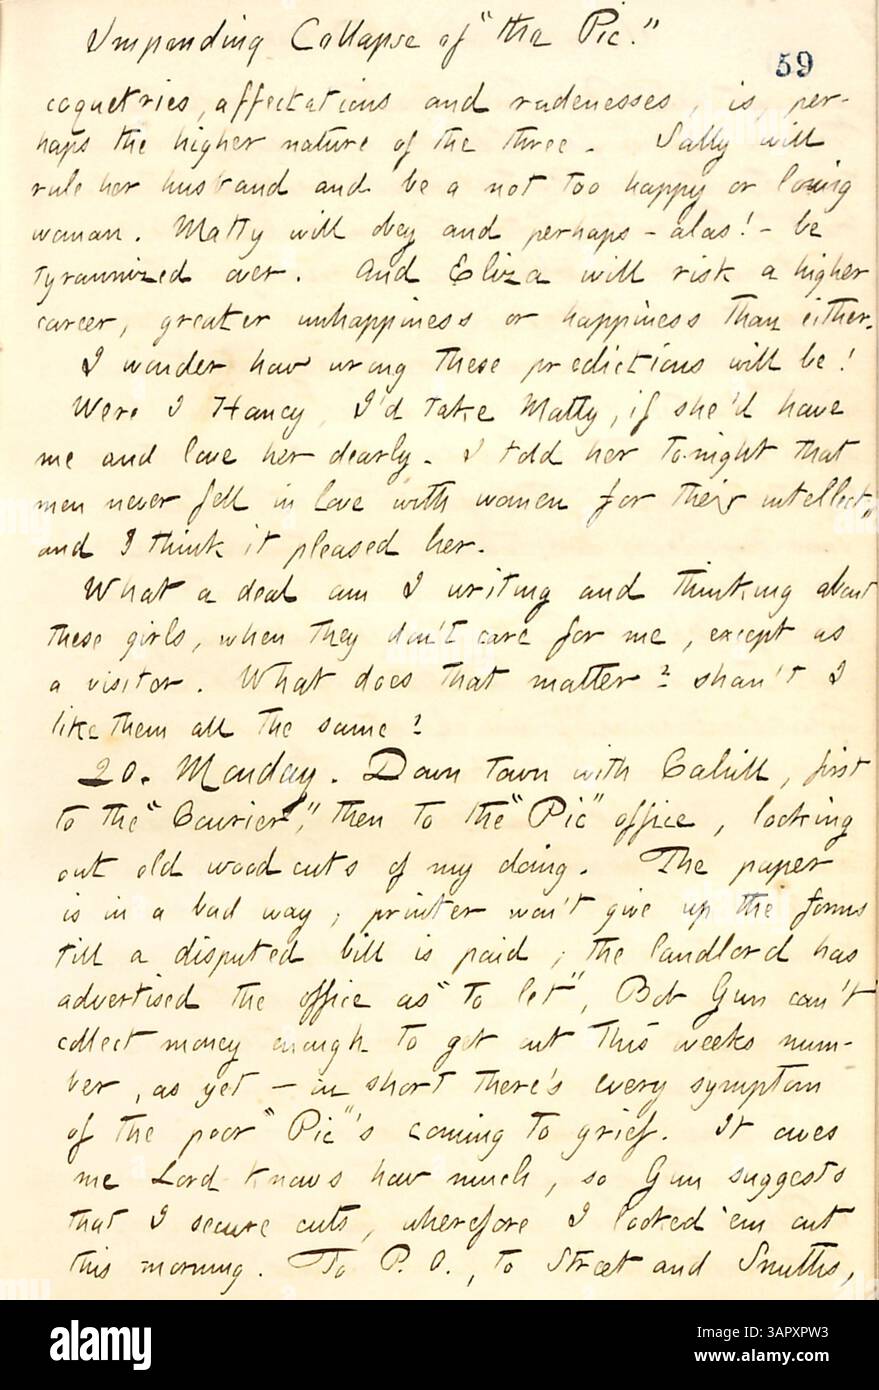 Impending Collapse of "the Pic."
59
coquetries, affectations and rudenesses, is, per-
haps the higher nature of the three. Sally will
rule her husband and be a not too happy or loving
woman. Matty will obey and perhaps - alas! - be
tyrannized over. And Eliza will risk a higher
career, greater unhappiness or happiness than either.
I wonder how wrong these predictions will be!
Were I Haney, I'd take Matty, if she'd have
me and love her dearly. I told her to-night that
men never fell in love with women for their intellect,
and I think it pleased her.
What a deal am I writing and thinking about
these girls, when they don't care for me, except as
a visitor. What does that matter? shan't I
like them all the same?
20. Monday. Down town with Cahill, first
to the "Courier," then to the "Pic" office, looking
out old wood cuts of my doing. The paper
is in a bad way; printer won't give up the forms
till a disputed bill is paid; the landlord has
advertised the office as "to let", Bob Gun can't
collect money enough to get out this weeks num-
ber, as yet - in short there's every symptom
of the poor "Pic"'s coming to grief. It owes
me Lord knows how much, so Gun suggests
that I secure cuts, wherefore I looked 'em out
this morning. To P. O., to Street and Smiths,
alamy
Image ID: 3APXPW3
www.alamy.com